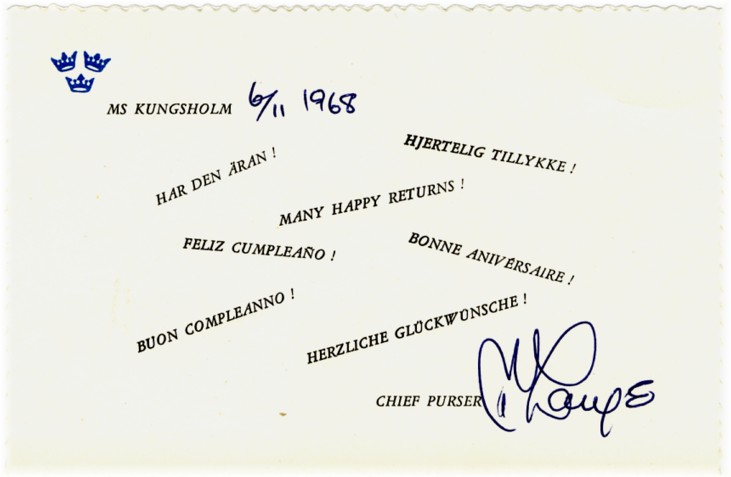 MS KUNGSHOLM 6/11 1968
HAR DEN ÄRAN !
HJERTELIG TILLYKKE !
MANY HAPPY RETURNS !
FELIZ CUMPLEAÑO !
BONNE ANIVÉRSAIRE !
BUON COMPLEANNO !
HERZLICHE GLÜCKWÜNSCHE !
CHIEF PURSER